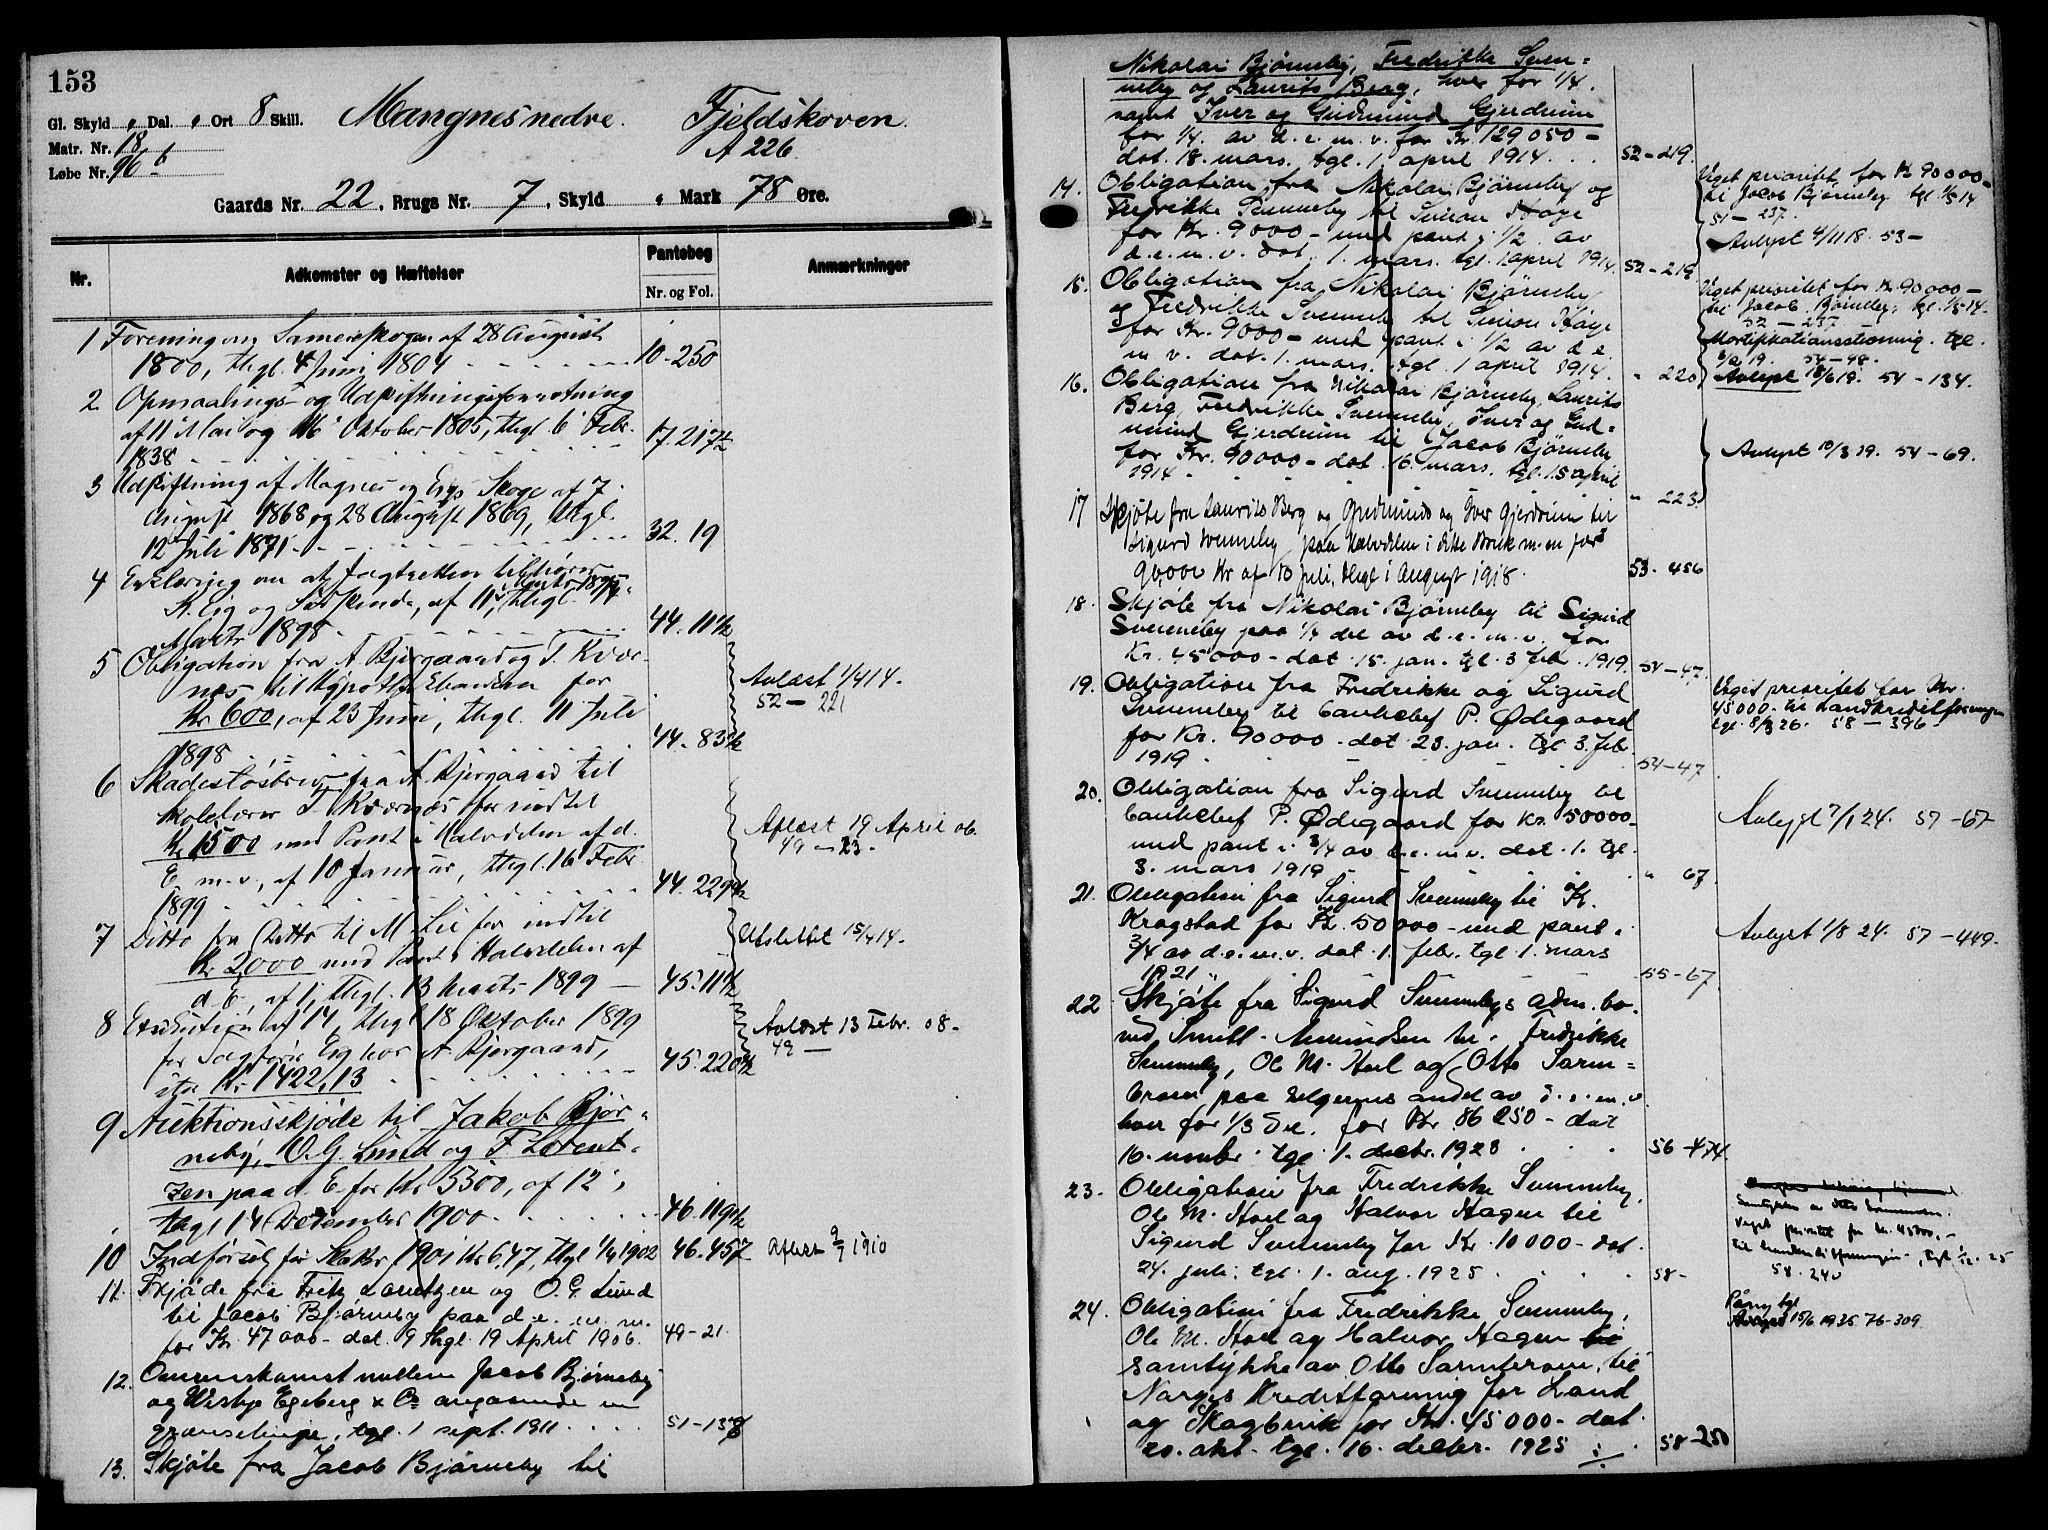 153
Gl. Skyld " Dal. " Ort 8 Skill. Mangnes nedre. Fjeldskoven.
Matr. Nr. 18 A 226.
Løbe Nr. 96 b
Gaards Nr. 22, Brugs Nr. 7, Skyld " Mark 78 Øre.
Nr. Adkomster og Hæftelser Pantebog Anmærkninger
Nr. og Fol.
1 Forening om Sameieskogen af 28 August
1800, thgl. 4 Juni 1801 10-250
2. Opmaalings- og Udskiftningsforretning
af 11 Mai og 16 Oktober 1805, thgl. 6 Febr.
1838 17.217½
3 Udskiftning af Magnes og Eigs Skoge af 7
August 1868 og 28 August 1869, thgl.
12 Juli 1871 32.19
4 Erklæring om at Jagtretten tilhører
K. Eig og af 11, thgl.
Marts 1898 44.11½
5 Obligation fra A. Bjergaard og T. Kvær-
nes til Hypothekbanken for
Kr 600, af 23 Juni, thgl. 11 Juli
1898 44.83½
Avlæst 1/4 14.
52 — 221
6 Skadesløsbrev fra A. Bjergaard til
Skolelærer T. Kværnes for indtil
Kr 1500 med Pant i Halvdelen af d.
E. m.v., af 10 Januar, thgl. 16 Febr
1899 44.229½
Aflæst 19 April 06.
49 — 23.
7 Ditto fra Ditto til M. Lie for indtil
Kr 2000 med Pant i Halvdelen af
d. E., af 1, thgl. 13 Marts 1899 — 45.11½
Afslettet 15/4 14.
8 Exekution af 14, thgl 18 Oktober 1899
for Eig hos A. Bjergaard,
stor Kr. 1422,13 45.220½
Avlæst 13 Febr. 08.
49 —
9 Auktionsskjøde til Jakob Bjør-
neby, O. G. Lund og F. Lorent-
zen paa d. E. for Kr 5300, af 12,
thgl 14 Desember 1900 46.119½
10 Indførsel for Skatter 1901 Kr 6,47, thgl 1/4 1902 46.457 Aflæst 9/7 1910
11. Skjøde fra Fritz Lorentzen og O. G. Lund
til Jacob Bjørneby paa d. e. m. m.
for Kr. 47000- dat. 9 thgl. 19 April 1906. 49-21.
12. Overenskomst mellem Jacob Bjørneby
og Westye Egeberg & Co angaaende en
grænselinje, tgl. 1 sept. 1911 51-138
13. Skjøte fra Jacob Bjørneby til
Nikolai Bjørneby, Fredrikke Sven-
neby og Laurits Berg, hver for 1/4.
samt Iver og Gudmund Gjerdrum
for 1/4. av d. e. m. v. for Kr. 129 050-
dat. 18. mars. tgl. 1. april 1914 52-219.
14. Obligation fra Nikolai Bjørneby og
Fredrikke Svenneby til Simon Høye
for Kr. 9000- med pant i 1/2 av
d. e. m. v. dat. 1. mars. tgl. 1 april 1914. 52-219
Veget prioritet for Kr 90000-
til Jacob Bjørneby tgl. 1/5 14
51- 237.
Avlyst 4/11 18. 53-
15. Obligation fra Nikolai Bjørneby
og Fredrikke Svenneby til Simon Høye
for Kr. 9000- med pant i 1/2 av d e.
m. v. dat. 1. mars. tgl. 1 april 1914. " 220
Veget prioritet for Kr. 90000-
til Jacob Bjørneby. tgl. 1/5-14.
52 — 237
Mortifikationsstevning. tgl.
3/2 19. 54-48.
Avlyst 18/6 19. 54-134.
16. Obligation fra Nikolai Bjørneby, Laurits
Berg, Fredrikke Svenneby, Iver og Gud-
mund Gjerdrum til Jacob Bjørneby
for Kr. 90000- dat. 16. mars. tgl. 15 april
1914 " 223.
Avlyst 10/3 19. 54-69.
17 Skjøte fra Laurits Berg og Gudmund og Iver Gjerdrum til
Sigurd Svenneby paa Halvdelen i dette Bruk m. m for
90,000 Kr af 10 juli, thgl 1 August 1918. 53-456
18. Skjøte fra Nikolai Bjørneby til Sigurd
Svenneby paa 1/4 del av d. e. m. v. for
Kr. 45000- dat. 15. jan. tgl. 3 febr. 1919. 54-47.
19. Obligation fra Fredrikke og Sigurd
Svenneby til bankchef P. Ødegaard
for Kr. 90000- dat. 23. jan. tgl. 3. febr.
1919 54-47.
Veget prioritet for Kr.
45000- til Landkreditforeningen
tgl. 8/3 26. 58-396-
20. Obligation fra Sigurd Svenneby til
bankchef P. Ødegaard for Kr. 50000-
med pant i 3/4 av d. e. m. v. dat. 1. tgl.
3. mars 1919 " 67.
Avlyst 7/1 24. 57-67-
21. Obligation fra Sigurd Svenneby til K.
Kragstad for Kr. 50000- med pant i
3/4 av d. e. m. v. dat 1. febr. tgl. 1. mars
1921 55-67.
Avlyst 1/8 24. 57-449.
22 Skjøte fra Sigurd Svennebys adm. bo.
ved Smith Amundsen til Fredrikke
Svenneby, Ole M. Hoel og Otto Sørm-
broen paa selgerens andel av d. e. m. v.
hver for 1/3 del. for Kr. 86 250- dat
16. novbr. tgl. 1. decbr. 1923 56-474
23. Obligation fra Fredrikke Svenneby,
Ole M. Hoel og Halvor Hagen til
Sigurd Svenneby for Kr. 10000- dat.
24. juli. tgl. 1. aug. 1925 58-
Veget prioritet for kr. 45000.-
58. 240
24. Obligation fra Fredrikke Svenneby,
Ole M. Hoel og Halvor Hagen
samtykke av Otto til
Norges Kreditforening for Land
og Skogbruk for Kr. 45000- dat.
20. okt. tgl. 16. decbr. 1925 58-250
Påny tgl
15/6 1935 76-309